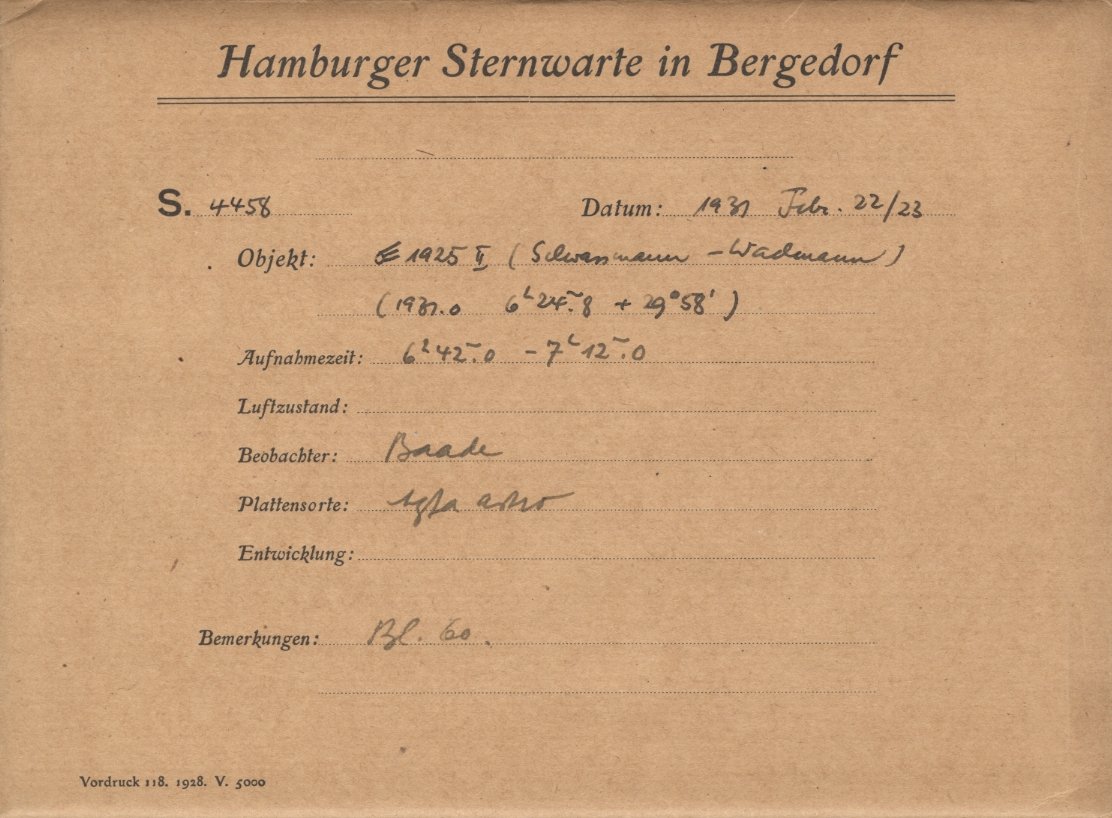 Hamburger Sternwarte in Bergedorf
S. 4458 Datum: 1931 Febr. 22/23
Objekt: 1925 II (Schwassmann – Wachmann)
(1931.0 6ʰ24ᵐ.8 + 29°58')
Aufnahmezeit: 6ʰ42ᵐ.0 – 7ʰ12ᵐ.0
Luftzustand:
Beobachter: Baade
Plattensorte: Agfa astro
Entwicklung:
Bemerkungen: Bl. 60.
Vordruck 118. 1928. V. 5000